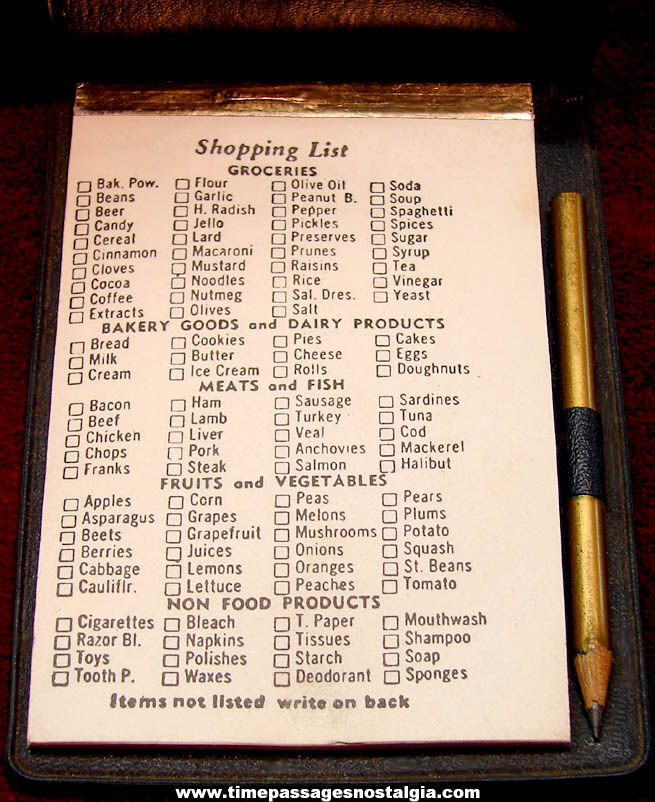 Shopping List
GROCERIES
Bak. Pow. Flour Olive Oil Soda
Beans Garlic Peanut B. Soup
Beer H. Radish Pepper Spaghetti
Candy Jello Pickles Spices
Cereal Lard Preserves Sugar
Cinnamon Macaroni Prunes Syrup
Cloves Mustard Raisins Tea
Cocoa Noodles Rice Vinegar
Coffee Nutmeg Sal. Dres. Yeast
Extracts Olives Salt
BAKERY GOODS and DAIRY PRODUCTS
Bread Cookies Pies Cakes
Milk Butter Cheese Eggs
Cream Ice Cream Rolls Doughnuts
MEATS and FISH
Bacon Ham Sausage Sardines
Beef Lamb Turkey Tuna
Chicken Liver Veal Cod
Chops Pork Anchovies Mackerel
Franks Steak Salmon Halibut
FRUITS and VEGETABLES
Apples Corn Peas Pears
Asparagus Grapes Melons Plums
Beets Grapefruit Mushrooms Potato
Berries Juices Onions Squash
Cabbage Lemons Oranges St. Beans
Cauliflr. Lettuce Peaches Tomato
NON FOOD PRODUCTS
Cigarettes Bleach T. Paper Mouthwash
Razor Bl. Napkins Tissues Shampoo
Toys Polishes Starch Soap
Tooth P. Waxes Deodorant Sponges
Items not listed write on back
www.timepassagesnostalgia.com